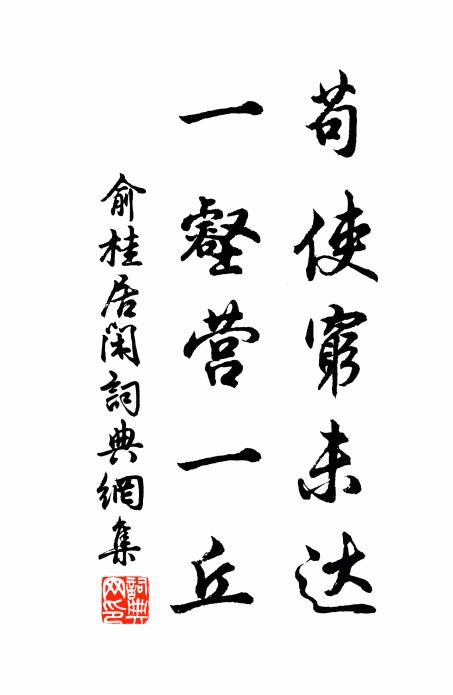 苟使穷未达
一壑营一丘
俞桂居閑詞典網集
詞典网印